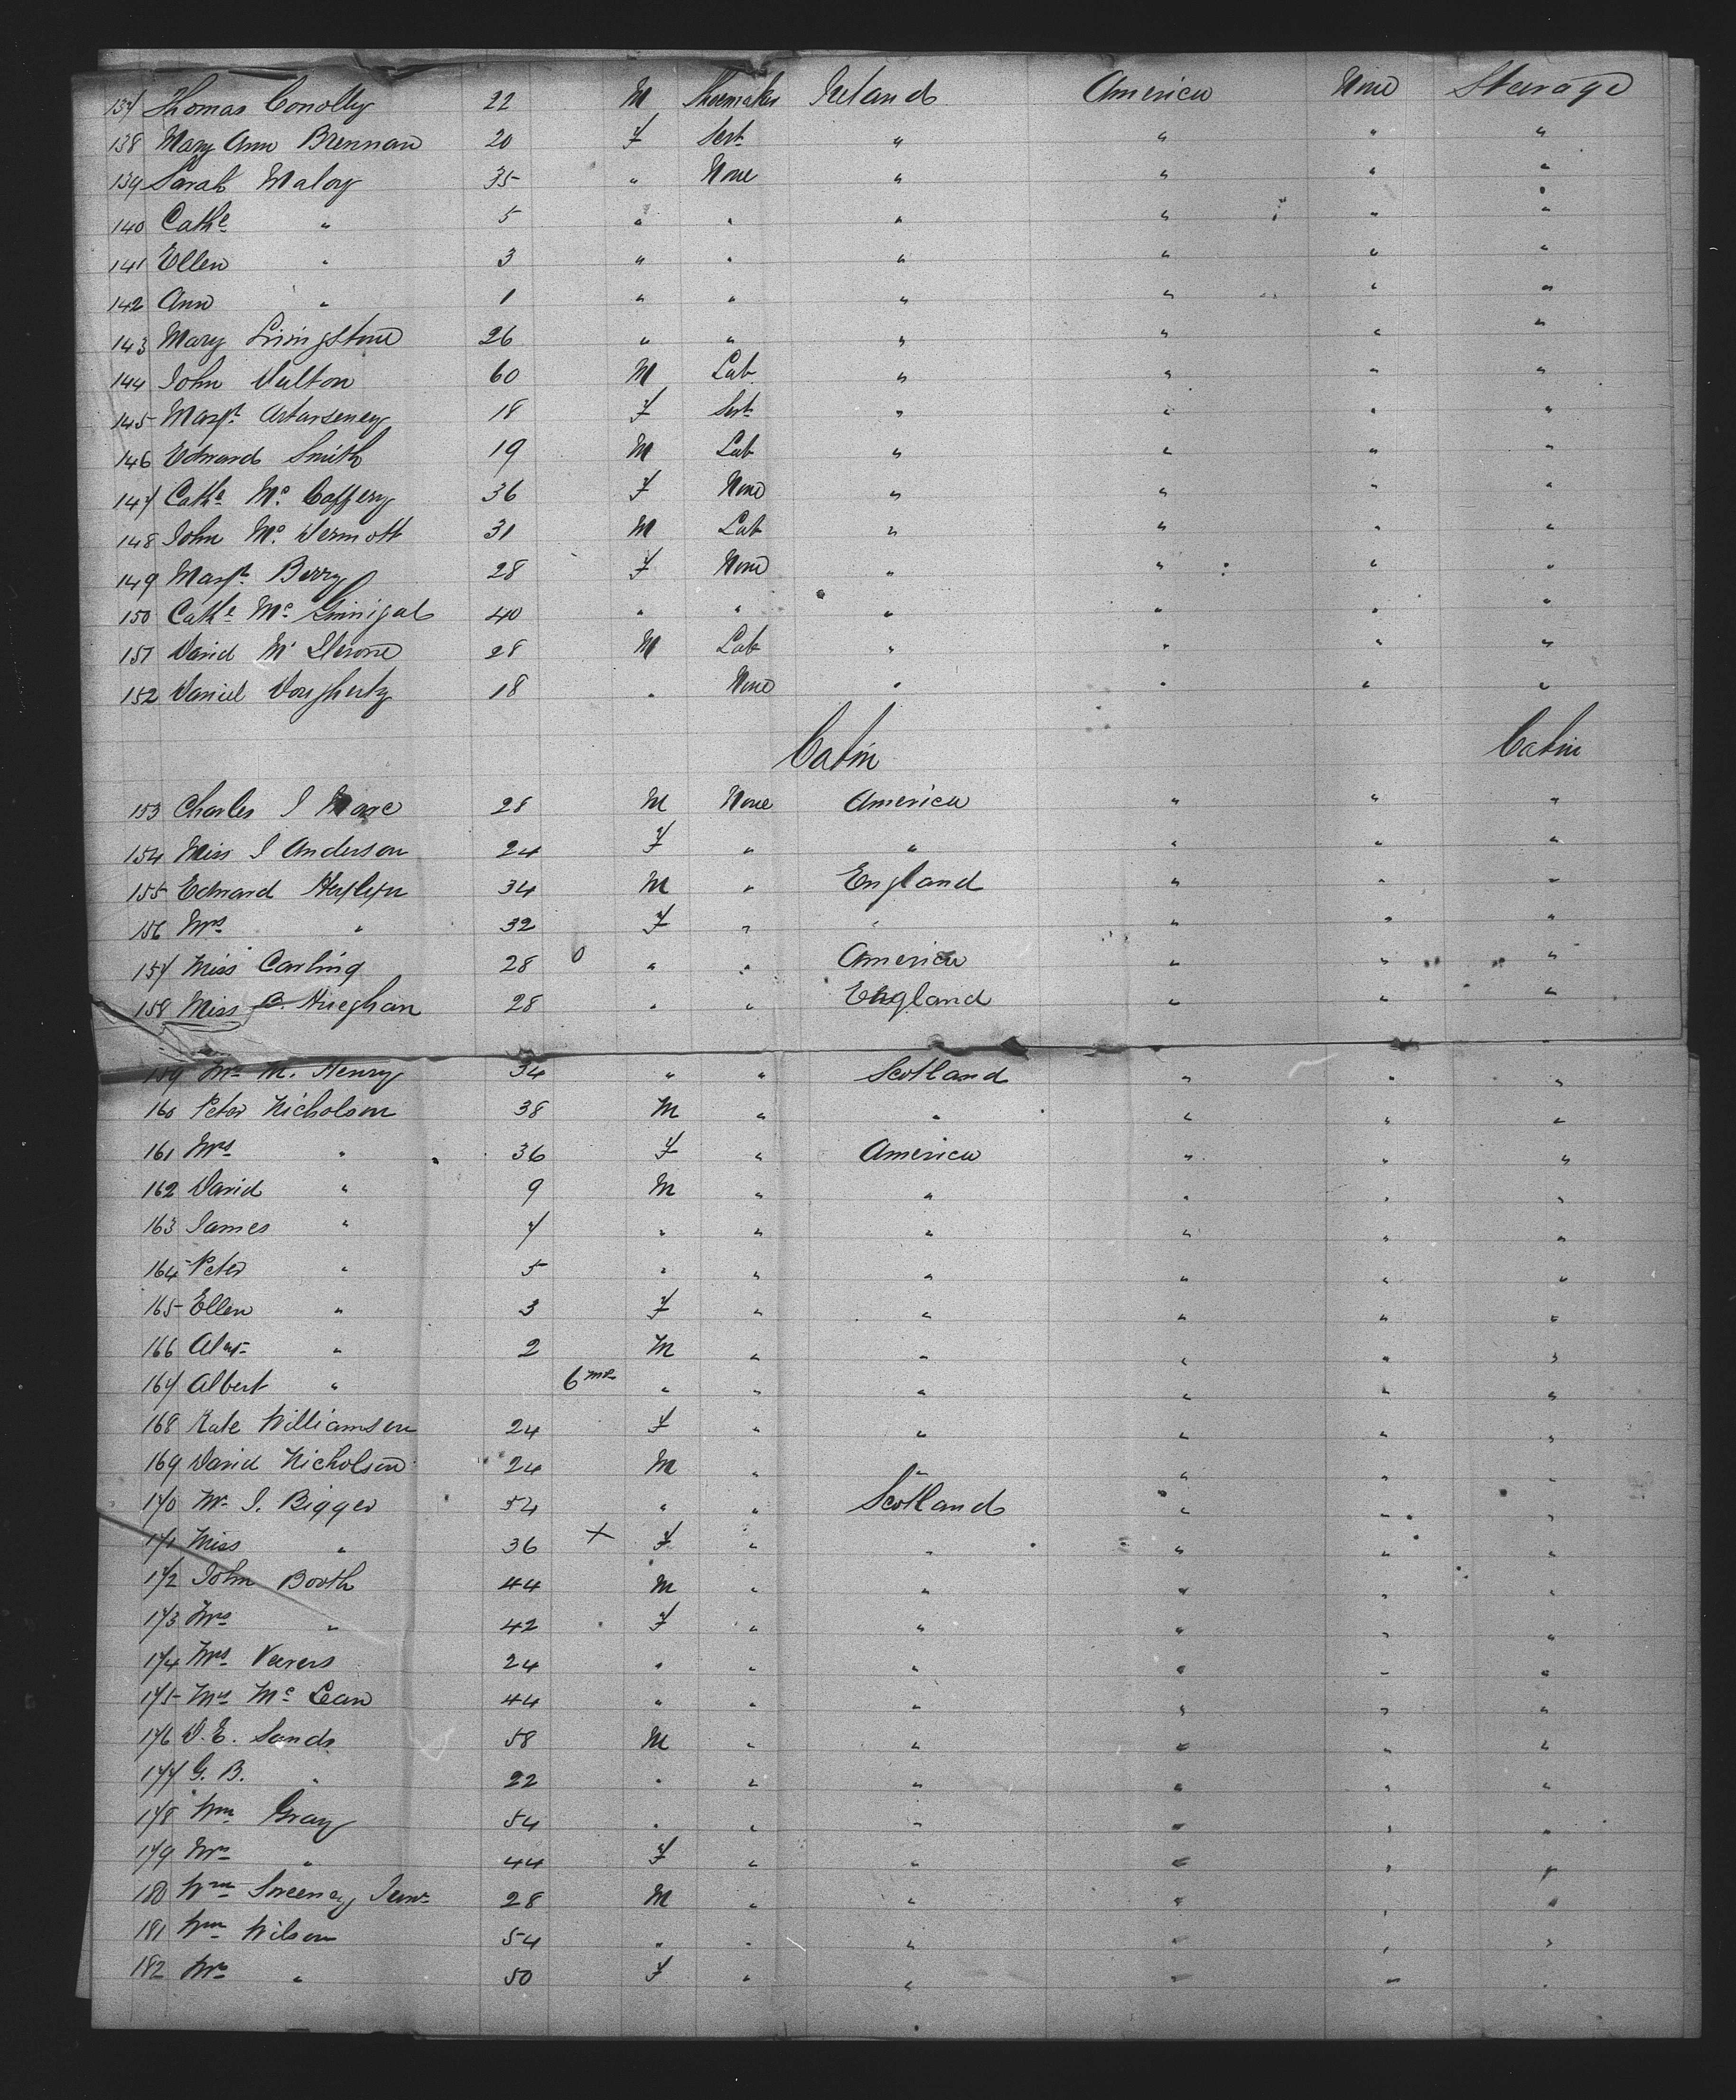 137 Thomas Conolly 22 M Shoemaker Ireland America None Steerage
138 Mary Ann Brennan 20 F Servt " " " "
139 Sarah Maloy 35 " None " " " "
140 Cathe " 5 " " " " " "
141 Ellen " 3 " " " " " "
142 Ann " 1 " " " " " "
143 Mary Livingstone 26 " " " " " "
144 John Dalton 60 M Lab " " " "
145 Margt 18 F Servt " " " "
146 Edward Smith 19 M Lab " " " "
147 Cathe Mc Caffery 36 F None " " " "
148 John Mc Dermott 31 M Lab " " " "
149 Margt Berry 28 F None " " " "
150 Cathe Mc 40 " " " " " "
151 David Mc 28 M Lab " " " "
152 Daniel Dougherty 18 " None " " " "
Cabin Cabin
153 Charles J 28 M None America " " "
154 Miss J Anderson 24 F " " " " "
155 Edward Heylyn 34 M " England " " "
156 Mrs " 32 F " " " " "
157 Miss Carling 28 " " America " " "
158 Miss B. Hueghan 28 " " England " " "
159 Mrs M. Henry 34 " " Scotland " " "
160 Peter Nicholson 38 M " " " " "
161 Mrs " 36 F " America " " "
162 David " 9 M " " " " "
163 James " 7 " " " " " "
164 Peter " 5 " " " " " "
165 Ellen " 3 F " " " " "
166 Alexr " 2 M " " " " "
167 Albert " 6 mos " " " " " "
168 Kate Williamson 24 F " " " " "
169 David Nicholson 24 M " " " " "
170 Mr J. Bigger 54 " " Scotland " " "
171 Miss " 36 + F " " " " "
172 John Booth 44 M " " " " "
173 Mrs " 42 F " " " " "
174 Mrs Veevers 24 " " " " " "
175 Mrs Mc Lean 44 " " " " " "
176 D. E. Sands 58 M " " " " "
177 G. B. " 22 " " " " " "
178 Wm Gray 54 " " " " " "
179 Mrs " 44 F " " " " "
180 Wm Sweeney Junr 28 M " " " " "
181 Wm Wilson 54 " " " " " "
182 Mrs " 50 F " " " " "